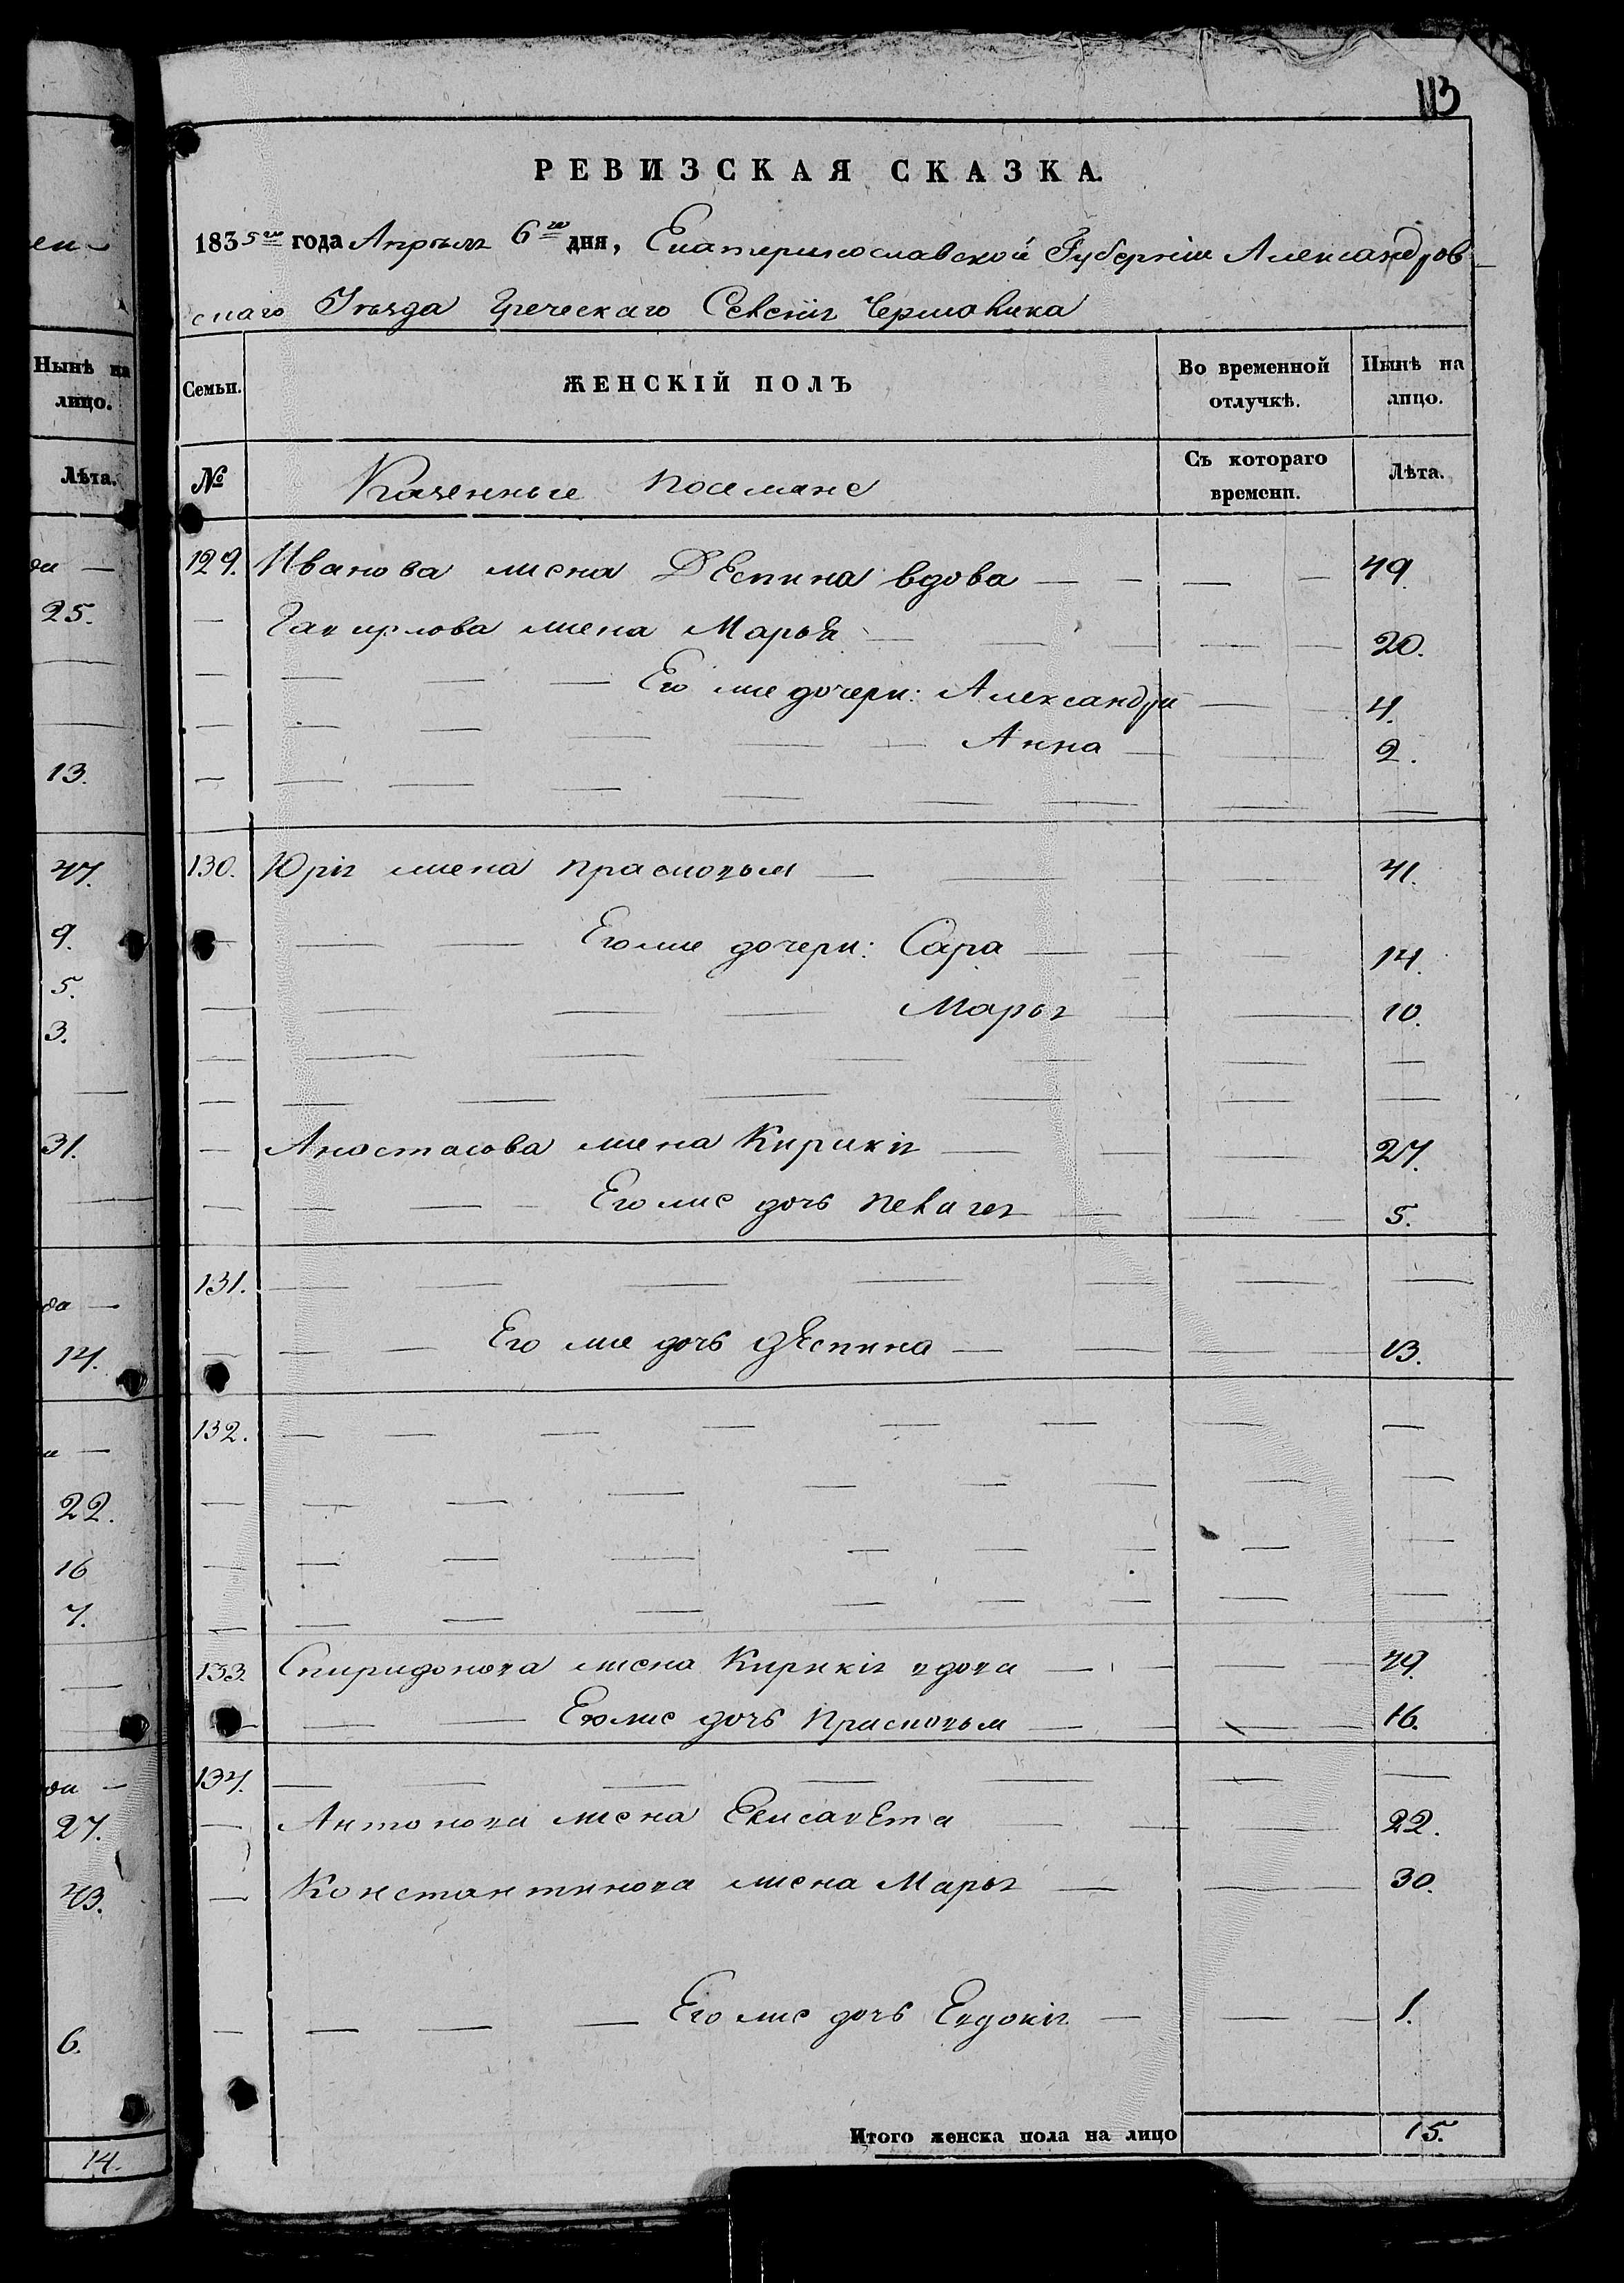 113
РЕВИЗСКАЯ СКАЗКА.
1835го года Апрѣля 6го дня, Екатеринославской Губерніи Александров
скаго Уѣзда Греческаго Селенія Чермалика
Нынѣ на лицо.
Семьи. ЖЕНСКІЙ ПОЛЪ Во временной отлучкѣ. Нынѣ на лицо.
Лѣта.
№ Казенные поселяне Съ котораго времени. Лѣта.
129. Иванова жена Деспина вдова — 49.
25.
Гаврилова жена Марья — 20.
Его же дочери: Александра — 4.
Анна — 2.
13.
47.
130. Юрія жена Прасковья — 41.
9.
Его же дочери: Сара — 14.
5.
Марья — 10.
3.
31.
Анастасова жена Кирикія — 27.
Его же дочь Пелагея — 5.
131.
14.
Его же дочь Деспина — 13.
132.
22.
16
7.
133. Спиридонова жена Кирикія вдова — 49.
Его же дочь Прасковья — 16.
134.
27.
Антонова жена Елисавета — 22.
43.
Константинова жена Марья — 30.
6.
Его же дочь Евдокія — 1.
14.
Итого женска пола на лицо 15.